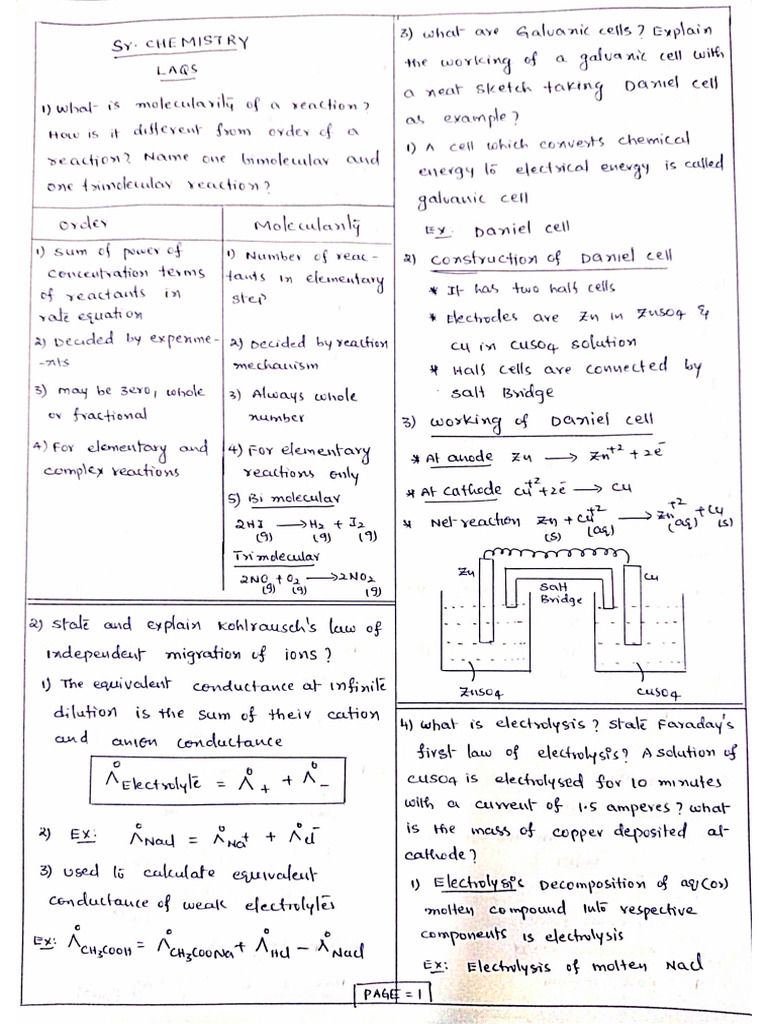 Sr. CHEMISTRY
LAQS
1) What is molecularity of a reaction?
How is it different from order of a
reaction? Name one bimolecular and
one trimolecular reaction?
Order
1) Sum of power of
concentration terms
of reactants in
rate equation
2) Decided by experime-
-nts
3) may be zero, whole
or fractional
4) For elementary and
complex reactions
Molecularity
1) Number of reac-
tants in elementary
step
2) Decided by reaction
mechanism
3) Always whole
number
4) For elementary
reactions only
5) Bi molecular
2HI → H2 + I2
(g) (g) (g)
Trimolecular
2NO + O2 → 2NO2
(g) (g) (g)
2) State and explain Kohlrausch's law of
independent migration of ions?
1) The equivalent conductance at infinite
dilution is the sum of their cation
and anion conductance
Λ° Electrolyte = Λ°+ + Λ°−
2) Ex: Λ°NaCl = Λ°Na+ + Λ°Cl−
3) used to calculate equivalent
conductance of weak electrolytes
Ex: Λ°CH3COOH = Λ°CH3COONa + Λ°HCl − Λ°NaCl
3) What are Galvanic cells? Explain
the working of a galvanic cell with
a neat sketch taking Daniel cell
as example?
1) A cell which converts chemical
energy to electrical energy is called
galvanic cell
Ex: Daniel cell
2) Construction of Daniel cell
* It has two half cells
* Electrodes are Zn in ZnSO4 &
Cu in CuSO4 solution
* Half cells are connected by
Salt Bridge
3) Working of Daniel cell
* At anode Zn → Zn+2 + 2e−
* At Cathode Cu+2 + 2e− → Cu
* Net reaction Zn + Cu+2 → Zn+2 + Cu
(s) (aq) (aq) (s)
Zn
Salt
Bridge
Cu
ZnSO4
CuSO4
4) What is electrolysis? State Faraday's
first law of electrolysis? A solution of
CuSO4 is electrolysed for 10 minutes
with a current of 1.5 amperes? What
is the mass of copper deposited at-
cathode?
1) Electrolysis Decomposition of aq (or)
molten compound into respective
components is electrolysis
Ex: Electrolysis of molten NaCl
PAGE = 1